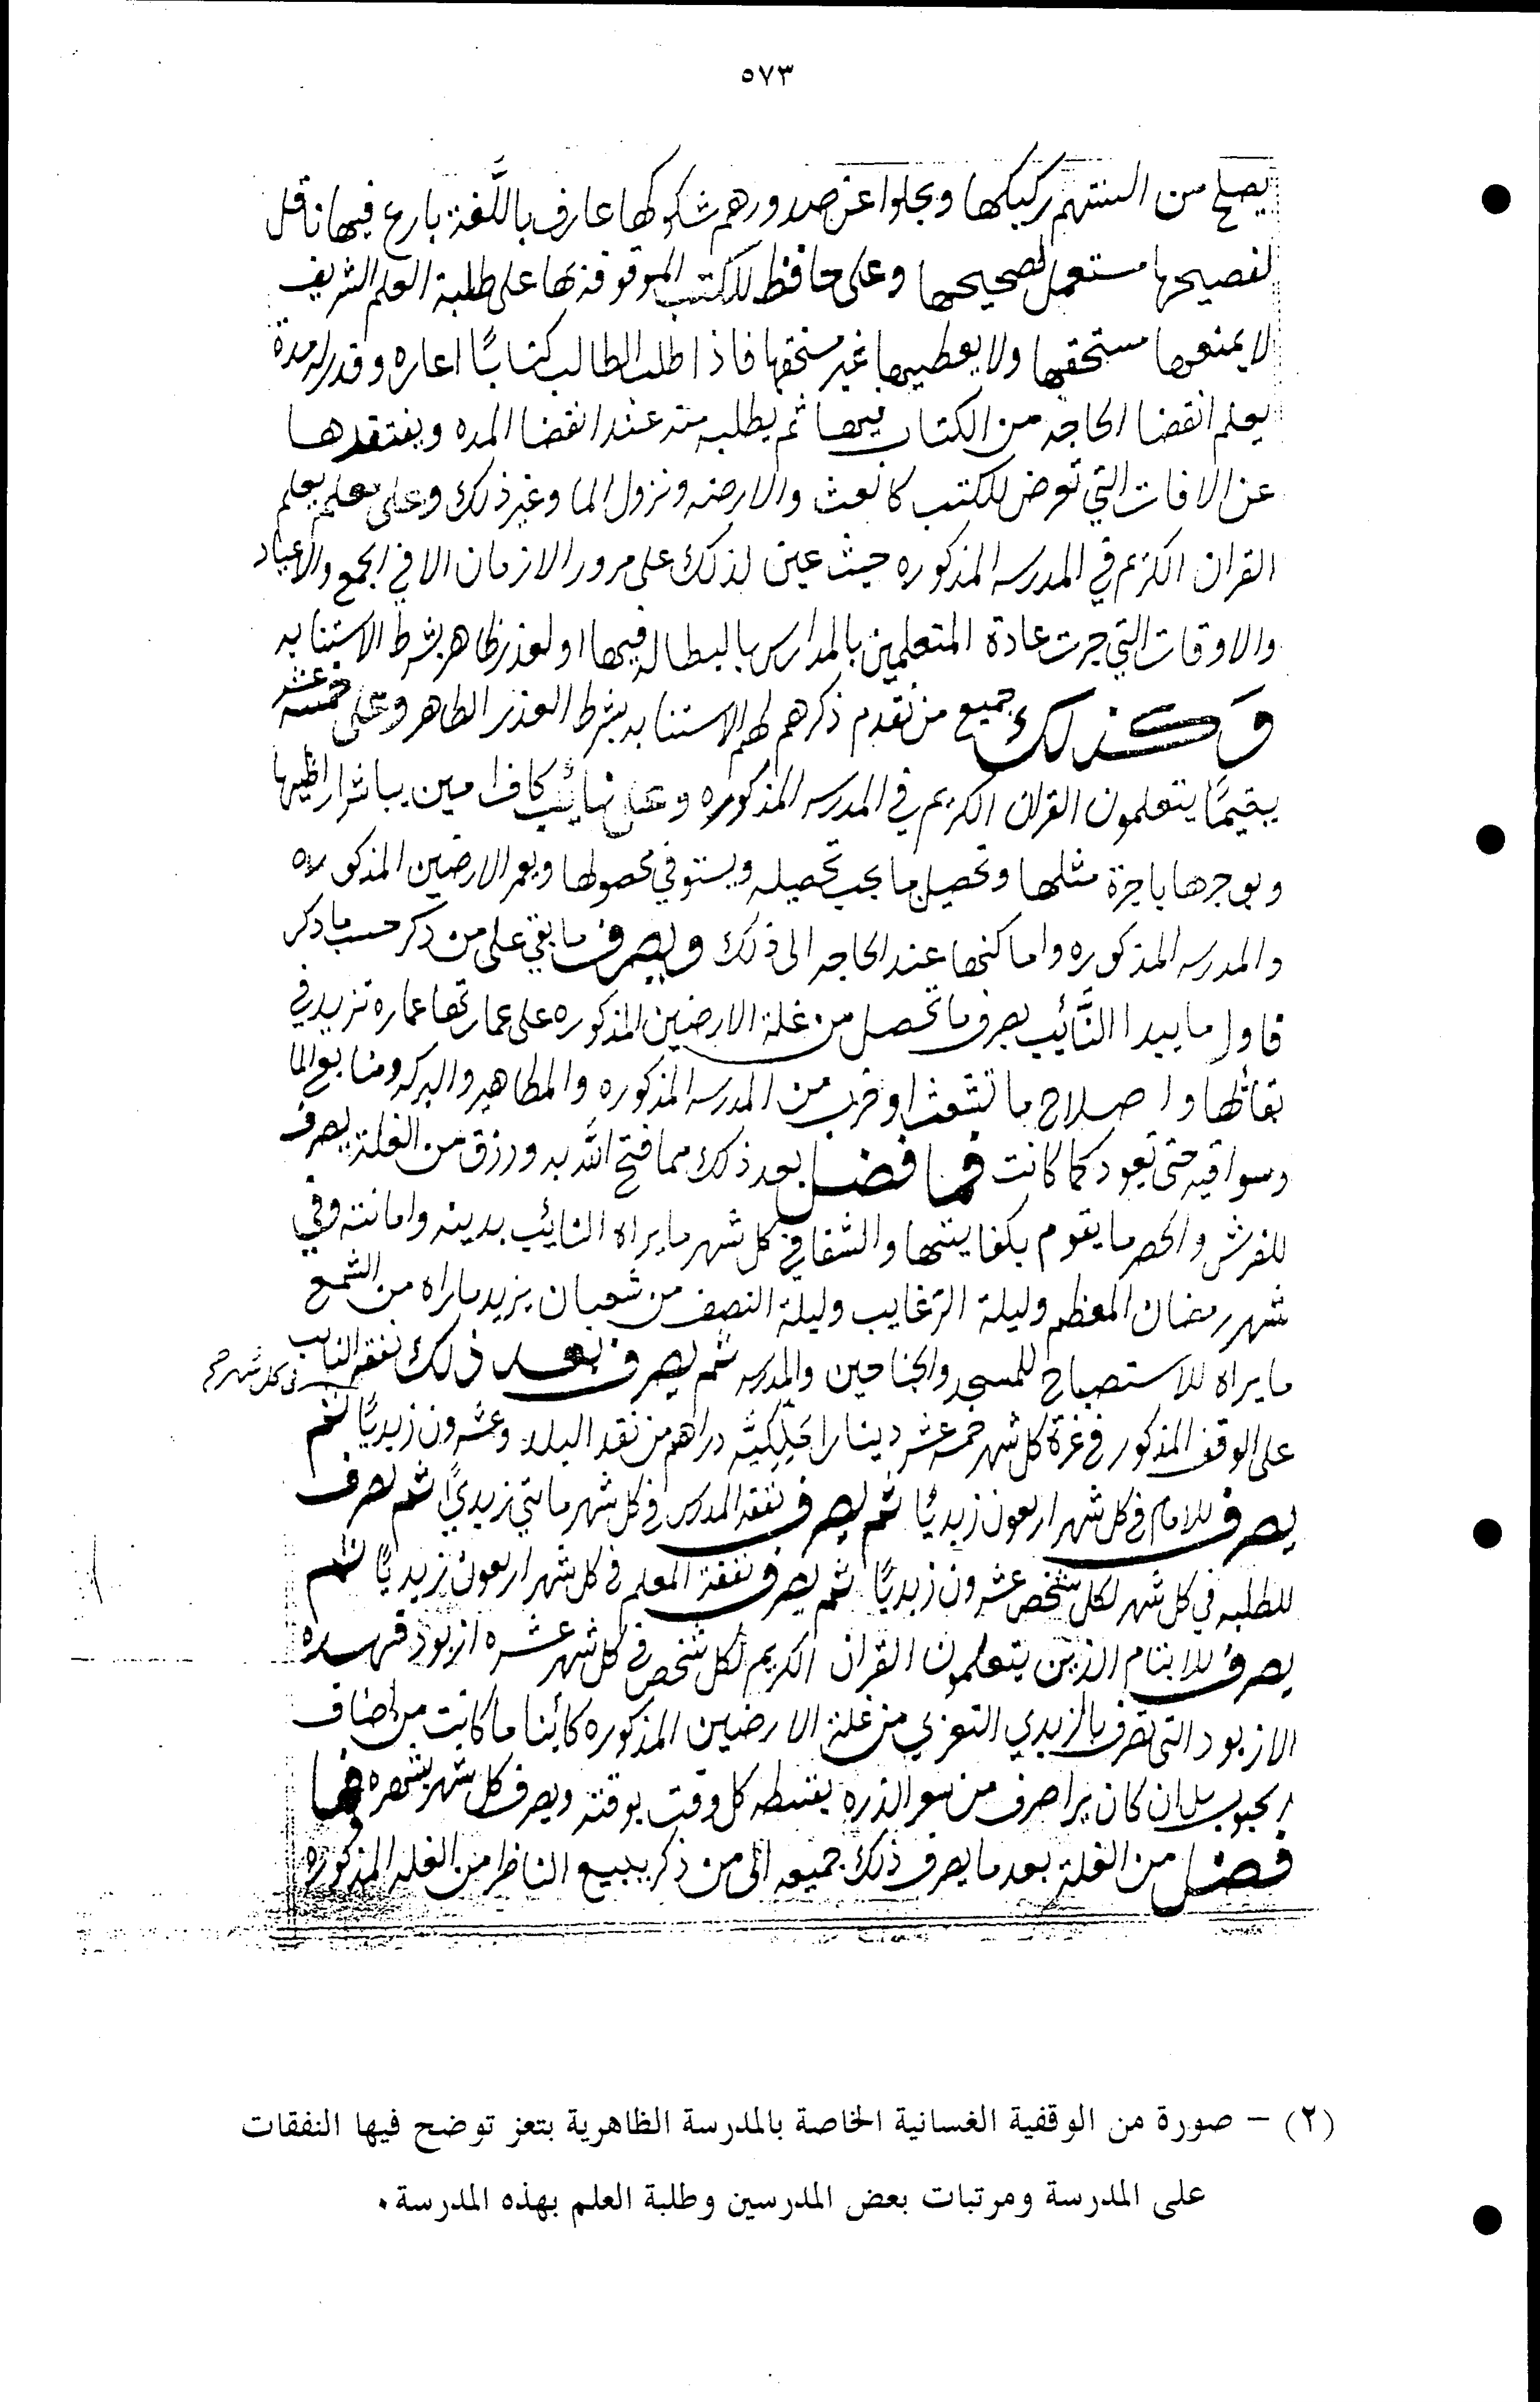 ٥٧٣
يصلح من السنتهم ركيكها ويجلوا عن صدورهم شكوكها عارف باللَّغة بارع فيها ناقل
لفصيحها مستعمل لصحيحها وعلى حافظ للكتب الموقوفة بها على طلبة العلم الشريف
لا يمنعها مستحقها ولا يعطيها غير مستحقها فاذا طلب الطالب كتابًا اعاره وقدر له مدة
يعلم انقضا الحاجه من الكتاب فيها ثم يطلبه منه عند انقضا المده ويفتقدها
عن الافات التي تعرض للكتب كالعث والارضه ونزول الما وغير ذلك وعلى معلم يعلم
القران الكريم في المدرسه المذكوره حيث عين لذلك على مرور الازمان الا في الجمع والاعياد
والاوقات التي جرت عادة المتعلمين بالمدارس بالبطاله فيها او لعذر ظاهر بشرط الاستنابه
وكذلك جميع من تقدم ذكرهم لهم الاستنابه بشرط العذر الظاهر وعلى خمسة عشر
يتيمًا يتعلمون القران الكريم في المدرسه المذكوره وعلى نائب كاف امين يباشر اراضيها
ويوجرها باجرة مثلها وتحصيل ما يجب تحصيله ويستوفي محصولها ويعمر الارضين المذكوره
والمدرسه المذكوره واماكنها عند الحاجه الى ذلك ويصرف ما بقي على من ذكر حسب ما ذكر
فاول ما يبدا النَّائب بصرف ما تحصل من غلة الارضين المذكوره على عمارتها عماره تزيد في
بقائها واصلاح ما تشعث او خرب من المدرسه المذكوره والمطاهير والبركه ومنابع الما
وسواقيه حتى تعود كما كانت فما فضل بعد ذلك مما فتح الله به ورزق من الغلة يصرف
للفرش والحصر ما يقوم بكفايتها والشقا في كل شهر ما يراه النائب بدينه وامانته وفي
شهر رمضان المعظم وليلة الرغايب وليلة النصف من شعبان يزيد ما راه من الشمع
ما يراه للاستصباح للمسجد والجناحين والمدرسه ثم يصرف بعد ذلك نفقة النايب
في كل شهر
على الوقف المذكور في غرة كل شهر خمسه عشر دينارا ملكيّه دراهم من نقد البلد وعشرون زبديًا ثم
يصرف للامام في كل شهر اربعون زبديًا ثم يصرف نفقة المدرس في كل شهر مايتي زبديًا ثم يصرف
للطلبه في كل شهر لكل شخص عشرون زبديًا ثم يصرف نفقة المعلم في كل شهر اربعون زبديًا ثم
يصرف للايتام الذين يتعلمون القران الكريم لكل شخص في كل شهر عشره ازبود وهذه
الازبود التي تصرف بالزبدي التعزي من غلة الارضين المذكوره كائنا ما كانت من اصناف
الحبوب بل ان كان برا صرف من سعر الذره بقسطه كل وقت بوقته ويصرف كل شهر بشهره فما
فضل من الغلة بعد ما يصرف ذلك جميعه الى من ذكر يبيع الناظر من الغله المذكوره
(٢) – صورة من الوقفية الغسانية الخاصة بالمدرسة الظاهرية بتعز توضح فيها النفقات
على المدرسة ومرتبات بعض المدرسين وطلبة العلم بهذه المدرسة.